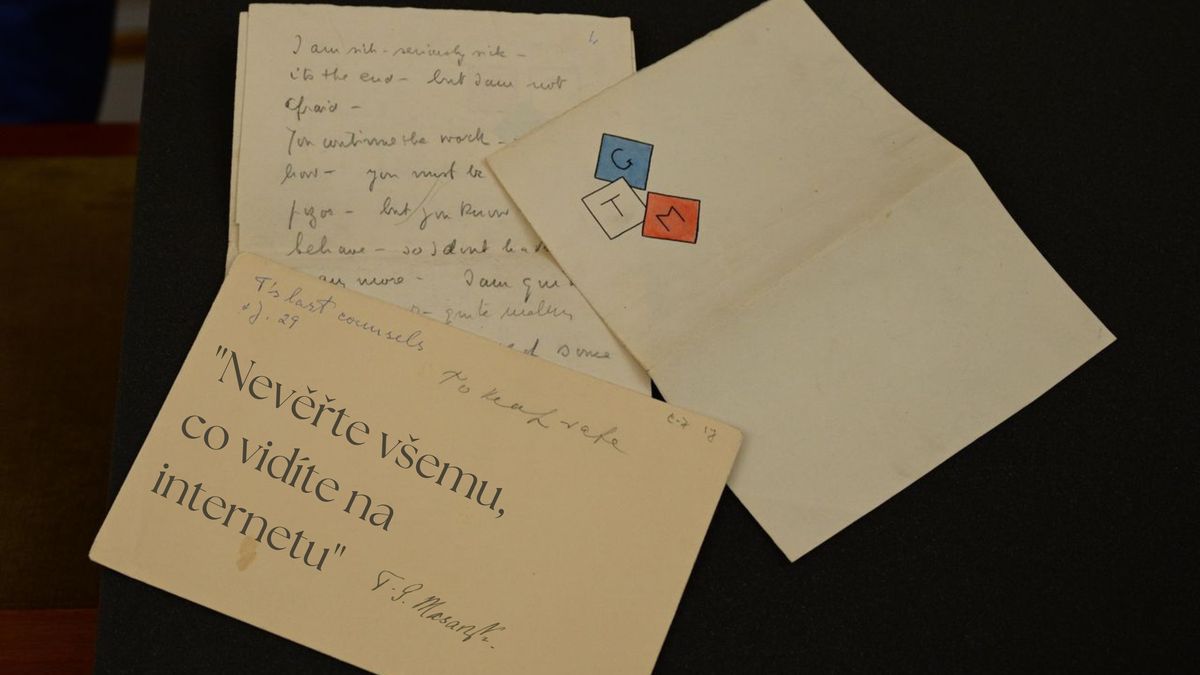 4
I am sick - seriously sick -
its the end - but I am not
afraid -
You continue the work -
how - you must be
- but you know
behave - so I dont
any more - I am
- quite
some
G
T
M
T's last counsels
29
To keep safe
"Nevěřte všemu,
co vidíte na
internetu"
T. G. Masaryk.